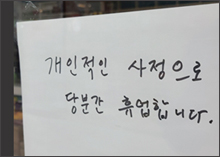 개인적인 사정으로
당분간 휴업합니다.